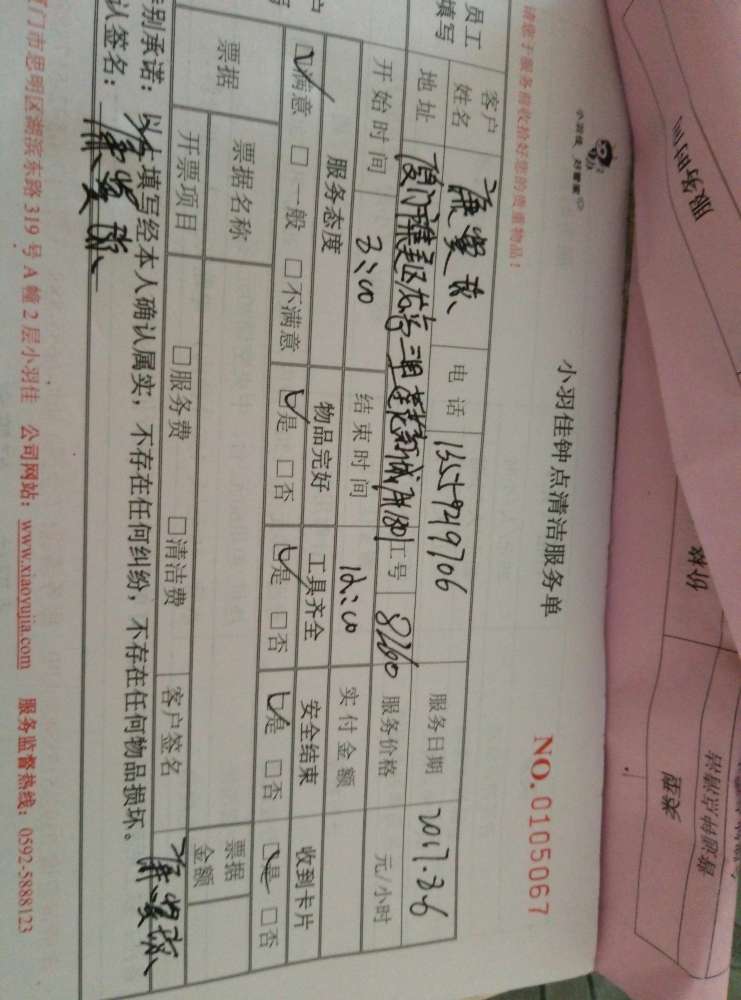 小羽佳 好管家
小羽佳钟点清洁服务单
NO.0105067
请您于服务前收拾好您的贵重物品!
员工填写
客户姓名
电话 13559249706
服务日期 2017.3.6
地址
工号 8260
服务价格 元/小时
开始时间
结束时间 12:00
实付金额
服务态度 物品完好 工具齐全 安全结束 收到卡片
☑满意 □一般 □不满意 ☑是 □否 ☑是 □否 ☑是 □否 ☑是 □否
票据 票据名称 票据金额
开票项目 □服务费 □清洁费 客户签名
特别承诺:以上填写经本人确认属实,不存在任何纠纷,不存在任何物品损坏。
认签名:
厦门市思明区湖滨东路319号A幢2层小羽佳 公司网站:www.xiaoyujia.com 服务监督热线:0592-5888123
服务时间
价格